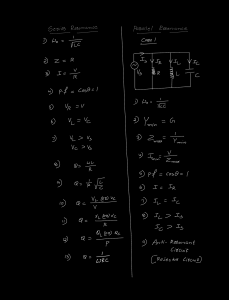 Series Resonance
1) ω₀ = 1/√LC
2) Z = R
3) I = V/R
4) Pf = cosθ = 1
5) V_R = V
6) V_L = V_C
7) V_L > V_S
V_C > V_S
8) Q = ωL/R
9) Q = 1/R √L/C
10) Q = V_L or V_C / V
11) Q = X_L or X_C / R
12) Q = Q_L or Q_C / P
13) Q = 1/ωRC
Parallel Resonance
Case 1
I_S I_R I_L I_C
V_S R L C
1) ω₀ = 1/√LC
2) Y_min = G
3) Z_max = 1/Y_min
4) I_min = V/Z_max
5) Pf = cosθ = 1
6) I = I_R
7) I_L = I_C
8) I_L > I_S
I_C > I_S
9) Anti-Resonant
Circuit
(Rejector Circuit)